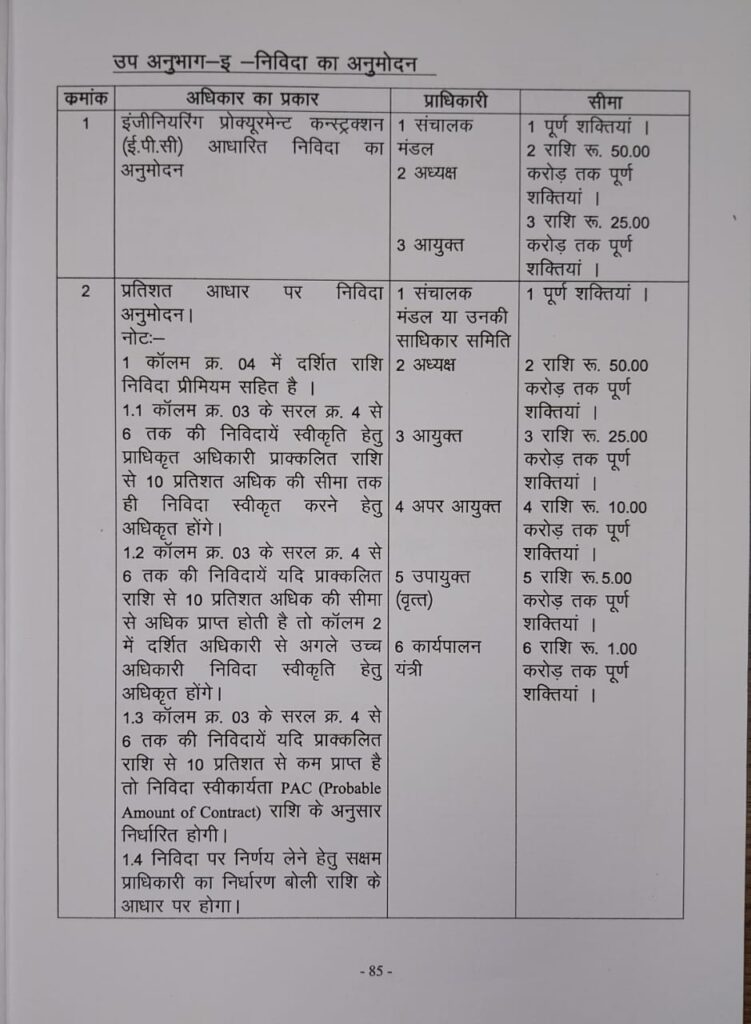 उप अनुभाग–इ –निविदा का अनुमोदन
कमांक अधिकार का प्रकार प्राधिकारी सीमा
1
इंजीनियरिंग प्रोक्यूरमेन्ट कन्स्ट्रक्शन
(ई.पी.सी) आधारित निविदा का
अनुमोदन
1 संचालक
मंडल
2 अध्यक्ष
3 आयुक्त
1 पूर्ण शक्तियां ।
2 राशि रू. 50.00
करोड़ तक पूर्ण
शक्तियां ।
3 राशि रू. 25.00
करोड़ तक पूर्ण
शक्तियां ।
2
प्रतिशत आधार पर निविदा
अनुमोदन।
नोटः–
1 कॉलम क्र. 04 में दर्शित राशि
निविदा प्रीमियम सहित है ।
1.1 कॉलम क्र. 03 के सरल क्र. 4 से
6 तक की निविदायें स्वीकृति हेतु
प्राधिकृत अधिकारी प्राक्कलित राशि
से 10 प्रतिशत अधिक की सीमा तक
ही निविदा स्वीकृत करने हेतु
अधिकृत होंगे।
1.2 कॉलम क्र. 03 के सरल क्र. 4 से
6 तक की निविदायें यदि प्राक्कलित
राशि से 10 प्रतिशत अधिक की सीमा
से अधिक प्राप्त होती है तो कॉलम 2
में दर्शित अधिकारी से अगले उच्च
अधिकारी निविदा स्वीकृति हेतु
अधिकृत होंगे।
1.3 कॉलम क्र. 03 के सरल क्र. 4 से
6 तक की निविदायें यदि प्राक्कलित
राशि से 10 प्रतिशत से कम प्राप्त है
तो निविदा स्वीकार्यता PAC (Probable
Amount of Contract) राशि के अनुसार
निर्धारित होगी।
1.4 निविदा पर निर्णय लेने हेतु सक्षम
प्राधिकारी का निर्धारण बोली राशि के
आधार पर होगा।
1 संचालक
मंडल या उनकी
साधिकार समिति
2 अध्यक्ष
3 आयुक्त
4 अपर आयुक्त
5 उपायुक्त
(वृत्त)
6 कार्यपालन
यंत्री
1 पूर्ण शक्तियां ।
2 राशि रू. 50.00
करोड़ तक पूर्ण
शक्तियां ।
3 राशि रू. 25.00
करोड़ तक पूर्ण
शक्तियां ।
4 राशि रू. 10.00
करोड़ तक पूर्ण
शक्तियां ।
5 राशि रू. 5.00
करोड़ तक पूर्ण
शक्तियां ।
6 राशि रू. 1.00
करोड़ तक पूर्ण
शक्तियां ।
- 85 -